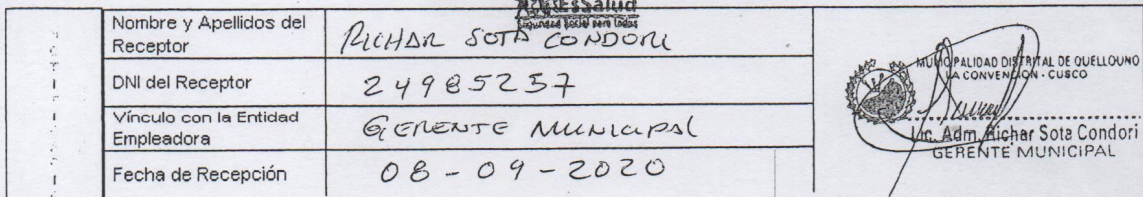 EsSalud
Seguridad Social para todos
Nombre y Apellidos del
Receptor
RICHAR SOTA CONDORI
DNI del Receptor
24985257
Vínculo con la Entidad
Empleadora
GERENTE MUNICIPAL
Fecha de Recepción
08-09-2020
MUNICIPALIDAD DISTRITAL DE QUELLOUNO
LA CONVENCIÓN - CUSCO
Lic. Adm. Richar Sota Condori
GERENTE MUNICIPAL